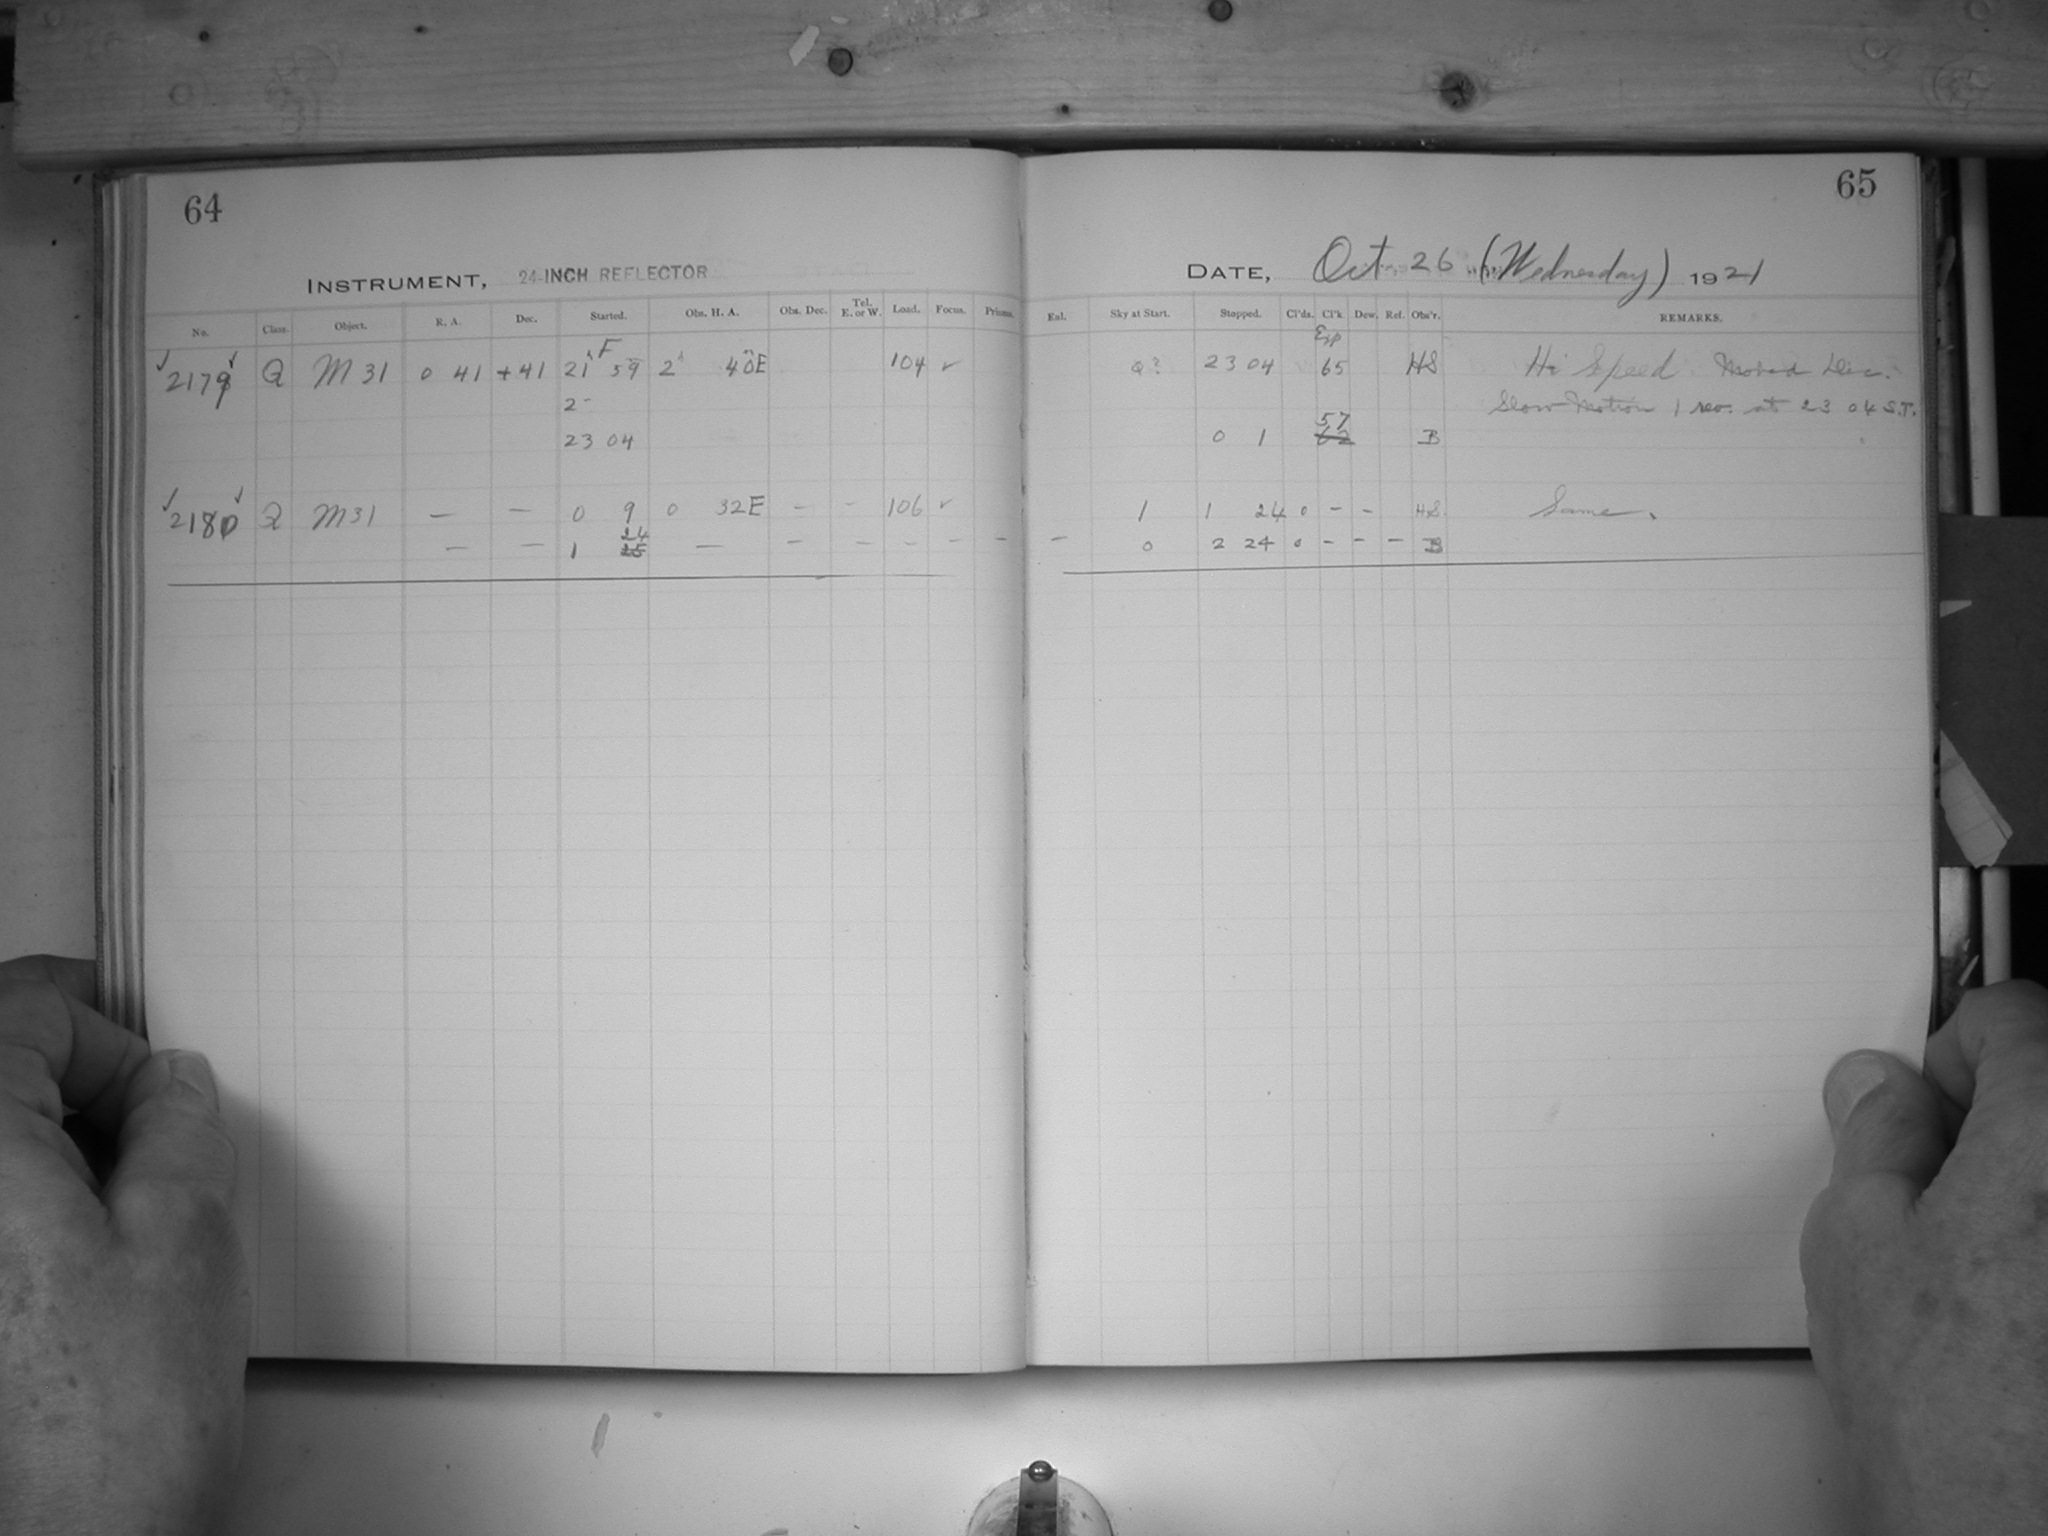 64
INSTRUMENT, 24-INCH REFLECTOR
No. Class. Object. R. A. Dec. Started. Obs. H. A. Obs. Dec. Tel. E. or W. Load. Focus. Prisms.
2179 Q M 31 0 41 +41 21h F 59m 2h 40mE 104 ✓
2-
23 04
2180 Q M31 — — 0 9 0 32E - - 106 ✓
— — 1 24 25 — - - - - -
65
DATE, Oct 26 (Wednesday) 1921
Eal. Sky at Start. Stopped. Cl'ds. Cl'k Dew. Ref. Obs'r. REMARKS.
Exp
Q? 23 04 65 HS Hi Speed Moved Dec.
Slow Motion 1 rev. at 23 04 S.T.
57
0 1 62 B
1 1 24 0 - - HS. Same.
- 0 2 24 0 - - - B